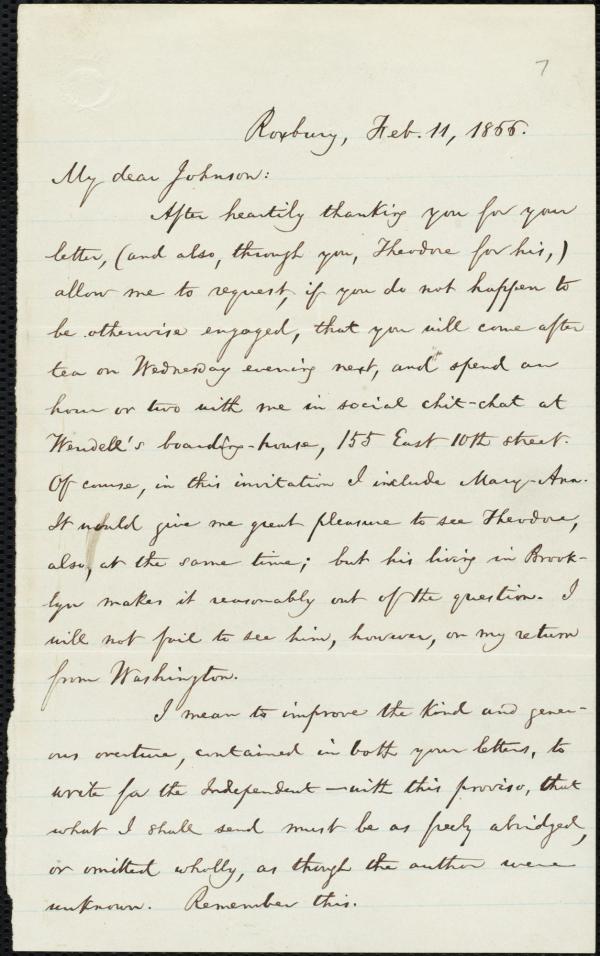 7
Roxbury, Feb. 11, 1866.
My dear Johnson:
After heartily thanking you for your
letter, (and also, through you, Theodore for his,)
allow me to request, if you do not happen to
be otherwise engaged, that you will come after
tea on Wednesday evening next, and spend an
hour or two with me in social chit-chat at
Wendell's boarding-house, 155 East 10th street.
Of course, in this invitation I include Mary-Ann.
It would give me great pleasure to see Theodore,
also, at the same time; but his living in Brook-
lyn makes it reasonably out of the question. I
will not fail to see him, however, on my return
from Washington.
I mean to improve the kind and gener-
ous overture, contained in both your letters, to
write for the Independent—with this proviso, that
what I shall send must be as freely abridged,
or omitted wholly, as though the author were
unknown. Remember this.